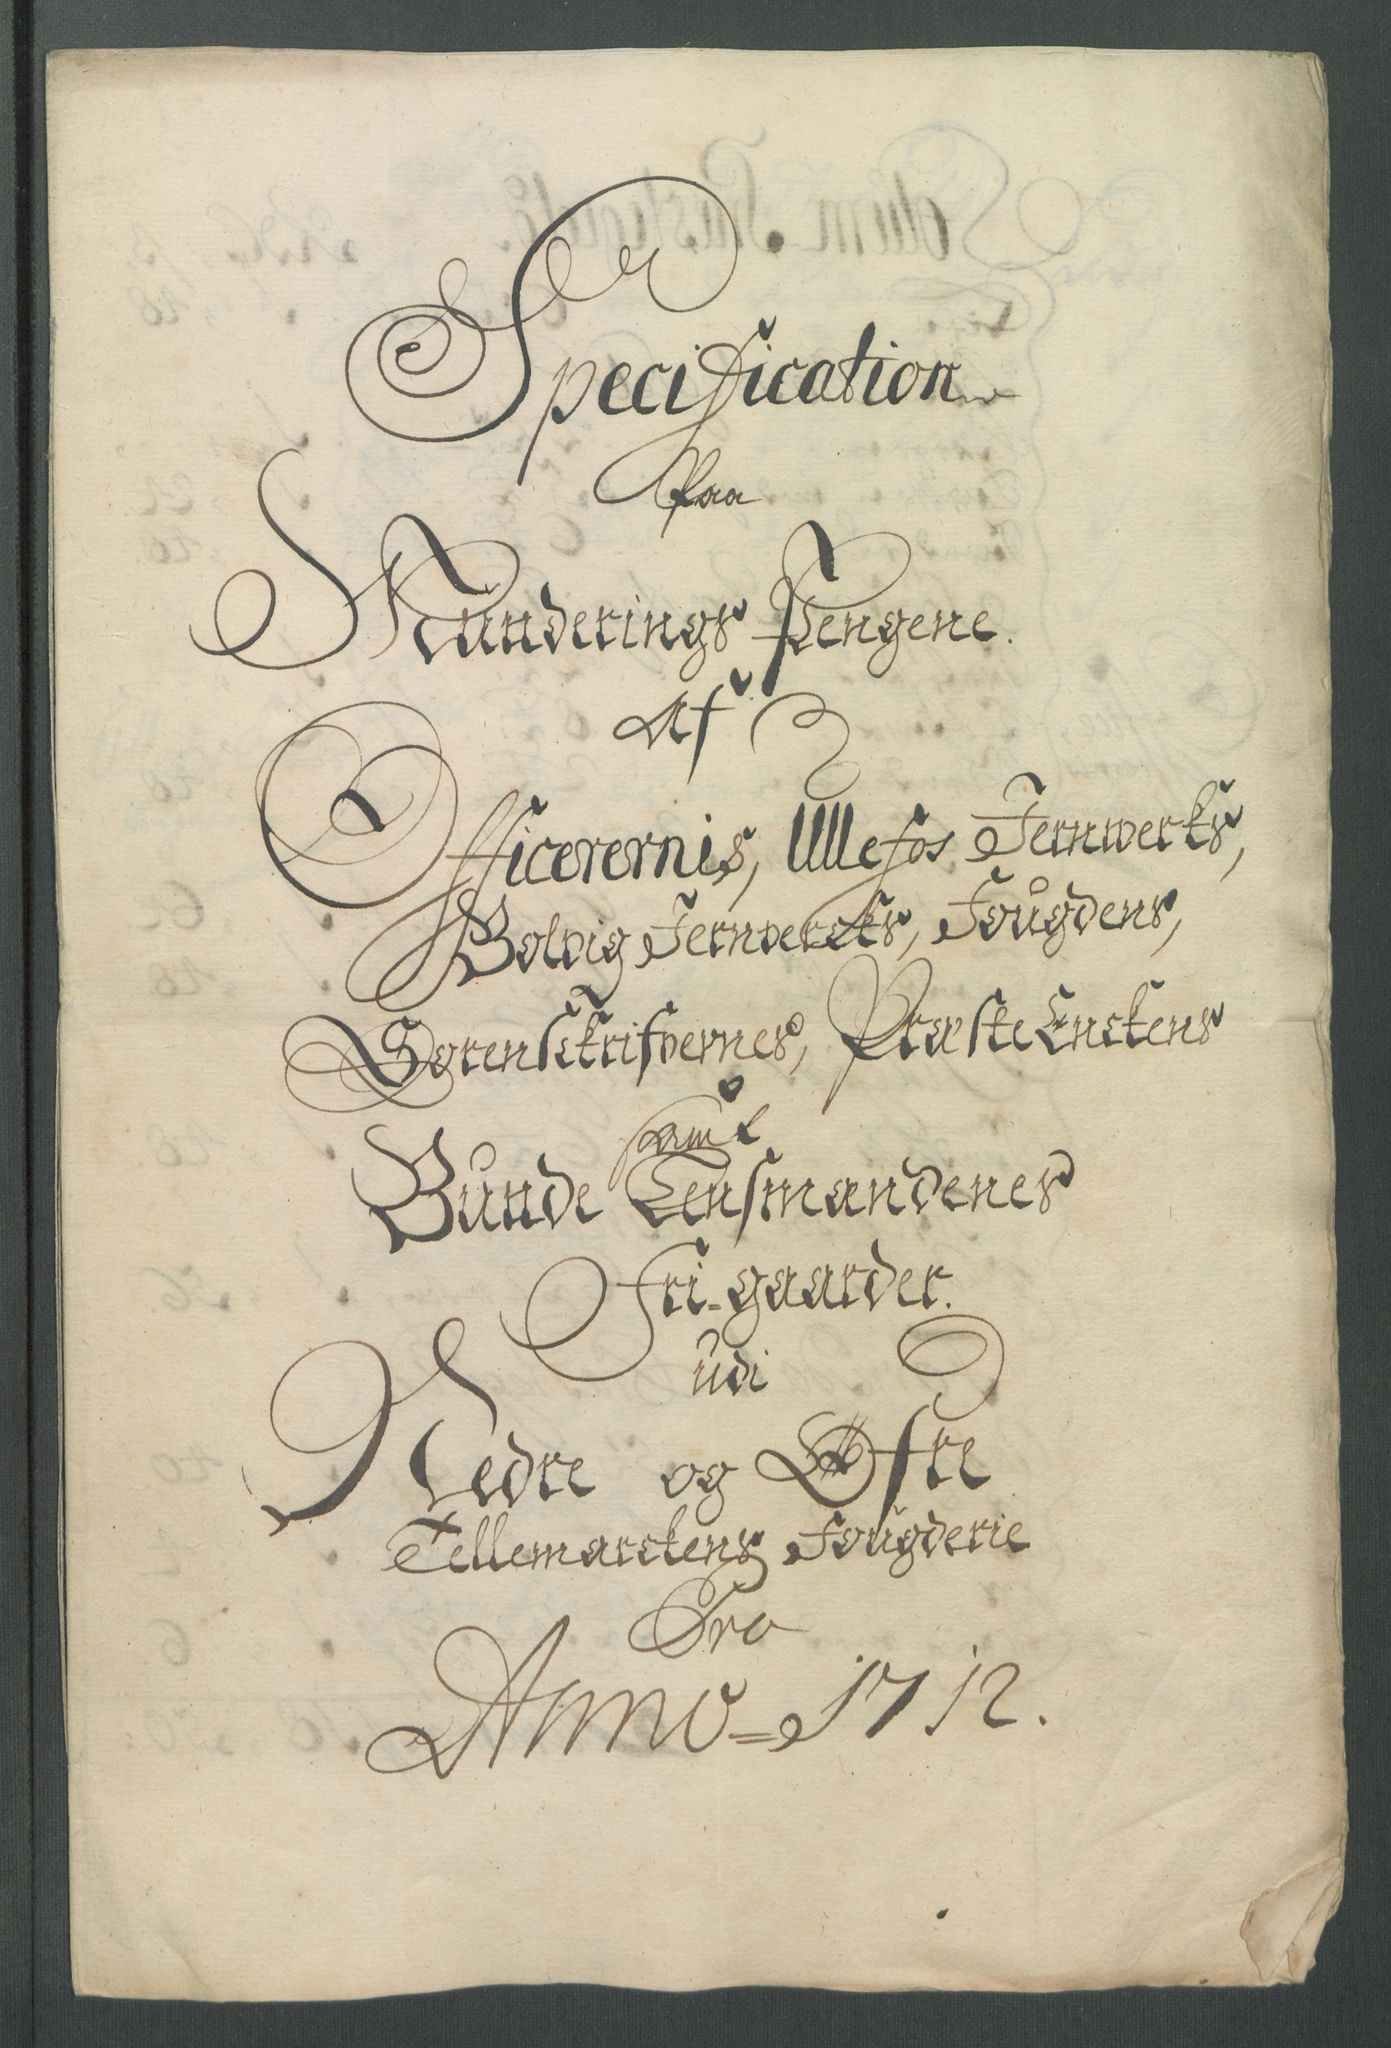 Specification
Paa
Munderings Pengene.
Af
Officerernis, Ullefos Jernwerks,
Bolvig Jernvercks, Fougdens,
Sorenschrifvernes, Præste Enckens
samt
Bunde Lensmandenes
Fri-gaarder.
udi
Nedre og Øfre
Tellemarckens Fougderie
Pro
Anno=1712.